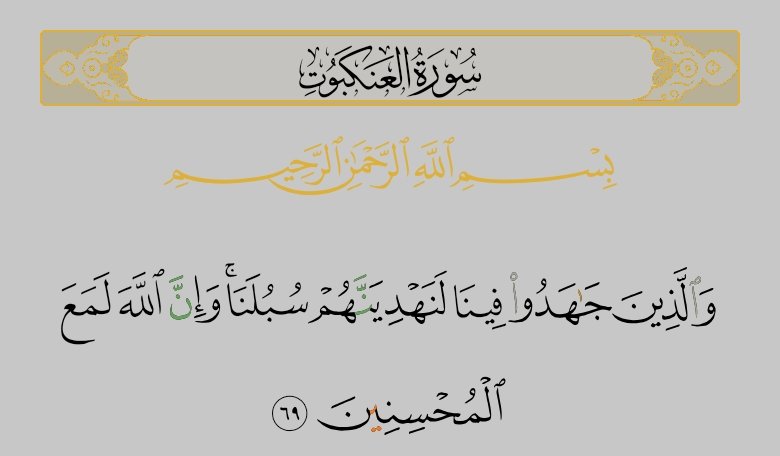 سُورَةُ العَنكَبُوتِ
بِسْمِ ٱللَّهِ ٱلرَّحْمَٰنِ ٱلرَّحِيمِ
وَٱلَّذِينَ جَٰهَدُوا۟ فِينَا لَنَهْدِيَنَّهُمْ سُبُلَنَا ۚ وَإِنَّ ٱللَّهَ لَمَعَ
ٱلْمُحْسِنِينَ ٦٩